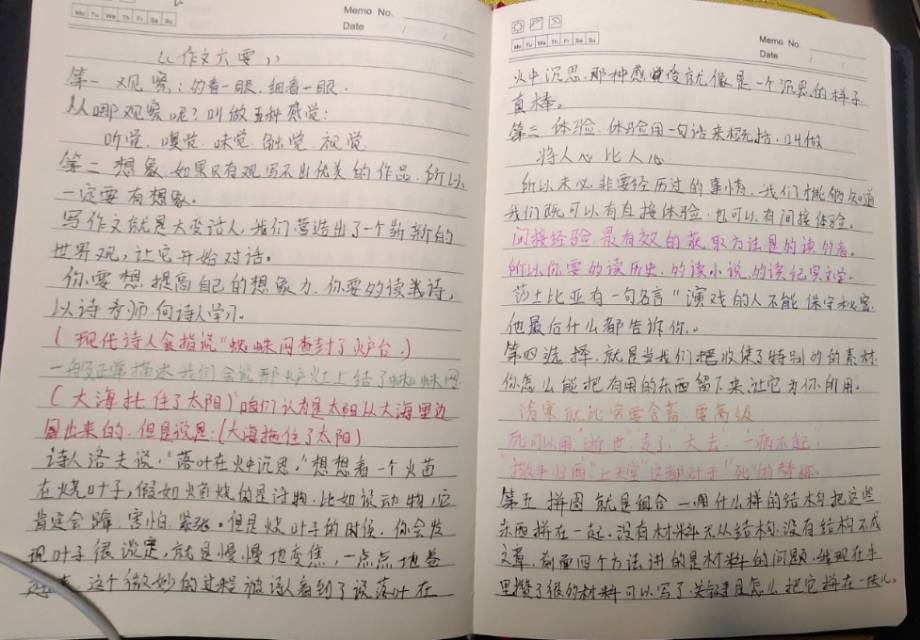 Memo No.
Mo Tu We Th Fr Sa Su
Date / /
《作文六要》
第一 观察：多看一眼，细看一眼.
从哪观察呢？叫做五种感觉：
听觉. 嗅觉. 味觉. 触觉. 视觉.
第二 想象. 如果只有观写不出优美的作品. 所以
一定要有想象.
写作文就是大变活人，我们营造出了一个崭新的
世界观，让它开始对话。
你要想提高自己的想象力，你要多读我诗，
以诗为师向诗人学习。
（现代诗人会指说“蜘蛛网查封了炉台.）
一般正常描述我们会说那炉灶上结了蜘蛛网
（大海托住了太阳）咱们认为是太阳从大海里边
冒出来的. 但是说是：（大海拖住了太阳）
诗人洛夫说：“落叶在火中沉思.”想想看一个火苗
在烧叶子，假如焰烧的是活物. 比如说动物，它
肯定会蹿. 害怕. 紧张。但是烧叶子的时候，你会发
现叶子很淡定，就是慢慢地变焦，一点点地卷
这个微妙的过程被诗人看到了说落叶在
Memo No.
Mo Tu We Th Fr Sa Su
Date / /
火中沉思. 那种感觉就像是一个沉思的样子
真棒。
第三 体验. 体验用一句话来概括. 叫做
将人心比人心
所以未必非要经历过的事情. 我们才能够知道
我们既可以有直接体验. 也可以有间接体验。
间接经验最有效的获取方法是多读多看。
所以你要多读历史. 多读小说. 多读纪实文学。
莎士比亚有一句名言“演戏的人不能保守秘密.
他最后什么都告诉你。
第四选择. 就是当我们把收集了特别多的素材
你怎么能把有用的东西留下来，让它为你所用.
清寒就比穷要含蓄. 要高级
死可以用“逝世”“走了”“大去”“一病不起”
“撒手归西”“上天堂”这都对于“死”的替称.
第五 拼图 就是组合 一用什么样的结构把这些
东西拼在一起. 没有材料无从结构. 没有结构不成
文章. 前面四个方法讲的是材料的问题. 我现在手
里攒了很多材料可以写了. 关键是怎么把它拼在一块儿。